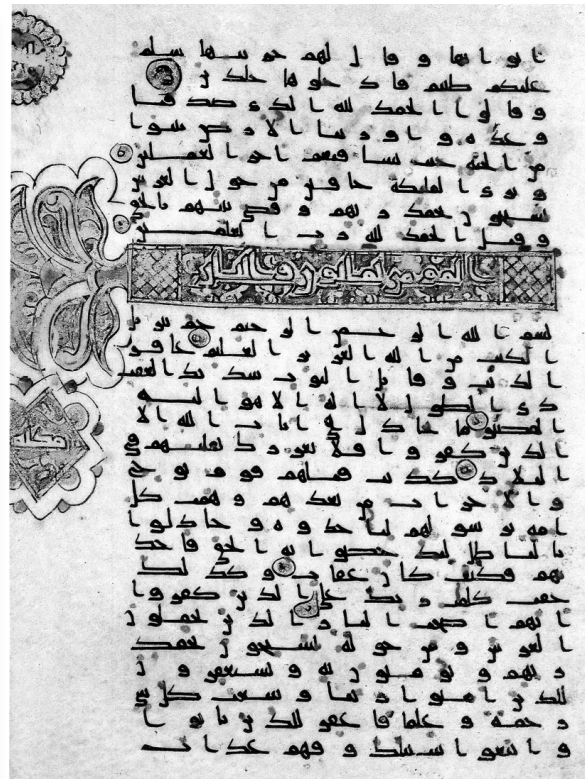 ابوابها وقال لهم خزنتها سلم
عليكم طبتم فادخلوها خلدين
وقالوا الحمد لله الذي صدقنا
وعده واورثنا الارض نتبوا
من الجنة حيث نشا فنعم اجر العملين
وترى الملئكة حافين من حول العرش
يسبحون بحمد ربهم وقضي بينهم بالحق
وقيل الحمد لله رب العلمين
المومن ثمانون
بسم الله الرحمن الرحيم حم تنزيل
الكتب من الله العزيز العليم غافر
الذنب وقابل التوب شديد العقاب
ذي الطول لا اله الا هو اليه
المصير ما يجادل في ايت الله الا
الذين كفروا فلا يغررك تقلبهم في
البلاد كذبت قبلهم قوم نوح
والاحزاب من بعدهم وهمت كل
امة برسولهم لياخذوه وجادلوا
بالبطل ليدحضوا به الحق فاخذ
تهم فكيف كان عقاب وكذلك
حقت كلمت ربك على الذين كفروا
انهم اصحب النار الذين يحملون
العرش ومن حوله يسبحون بحمد
ربهم ويومنون به ويستغفرون
للذين امنوا ربنا وسعت كل شي
رحمة وعلما فاغفر للذين تابوا
واتبعوا سبيلك وقهم عذاب